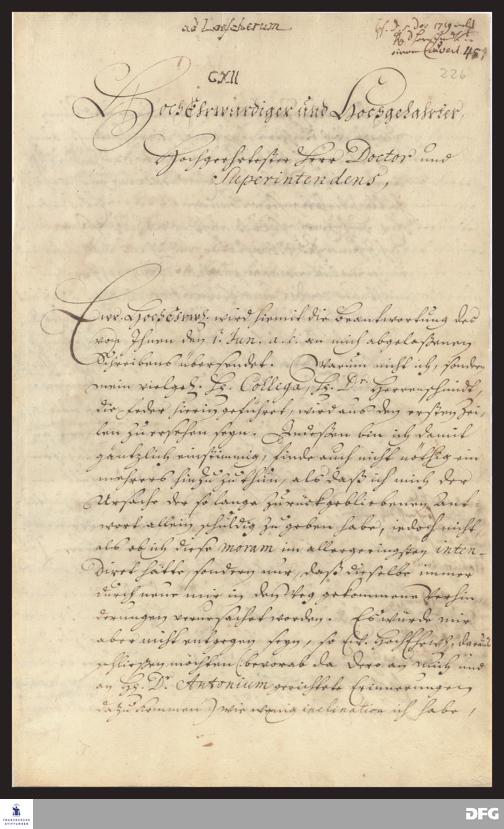 ad Loescherum
CXII
226
HochEhrwürdiger und Hochgelahrter,
Hochgeehrtester Herr Doctor und
Superintendens,
Ewr. HochEhrw. wird hiemit die Beantwortung des
von Ihnen den 1. Jun. a. c. an mich abgelaßenen
Schreibens übersendet. Warum nicht ich, sondern
mein vielgel. Hr. Collega, Hr. Dr. Herrnschmidt,
die Feder hierin geführet, wird aus den ersten Zei-
len zu ersehen seyn. Indeßen bin ich damit
gäntzlich einstimmig, finde auch nicht nöthig ein
mehrers hinzu zu thun, als daß ich mich der
Ursache der so lange zurückgebliebenen Ant-
wort allein schuldig zu geben habe, iedoch nicht,
als ob ich diese moram im allergeringsten inten-
diret hätte, sondern nur, daß dieselbe immer
durch neue mir in den Weg gekommene Verhin
derungen verursachet worden. Es würde mir
aber nicht entgegen seyn, so Ew. HochEhrw. daraus
schließen möchten (bevorab da Dero an mich und
an Hr. D. Antonium gerichtete Erinnerungen
dazu kommen) wie wenig inclination ich habe,
FRANCKESCHE STIFTUNGEN
DFG